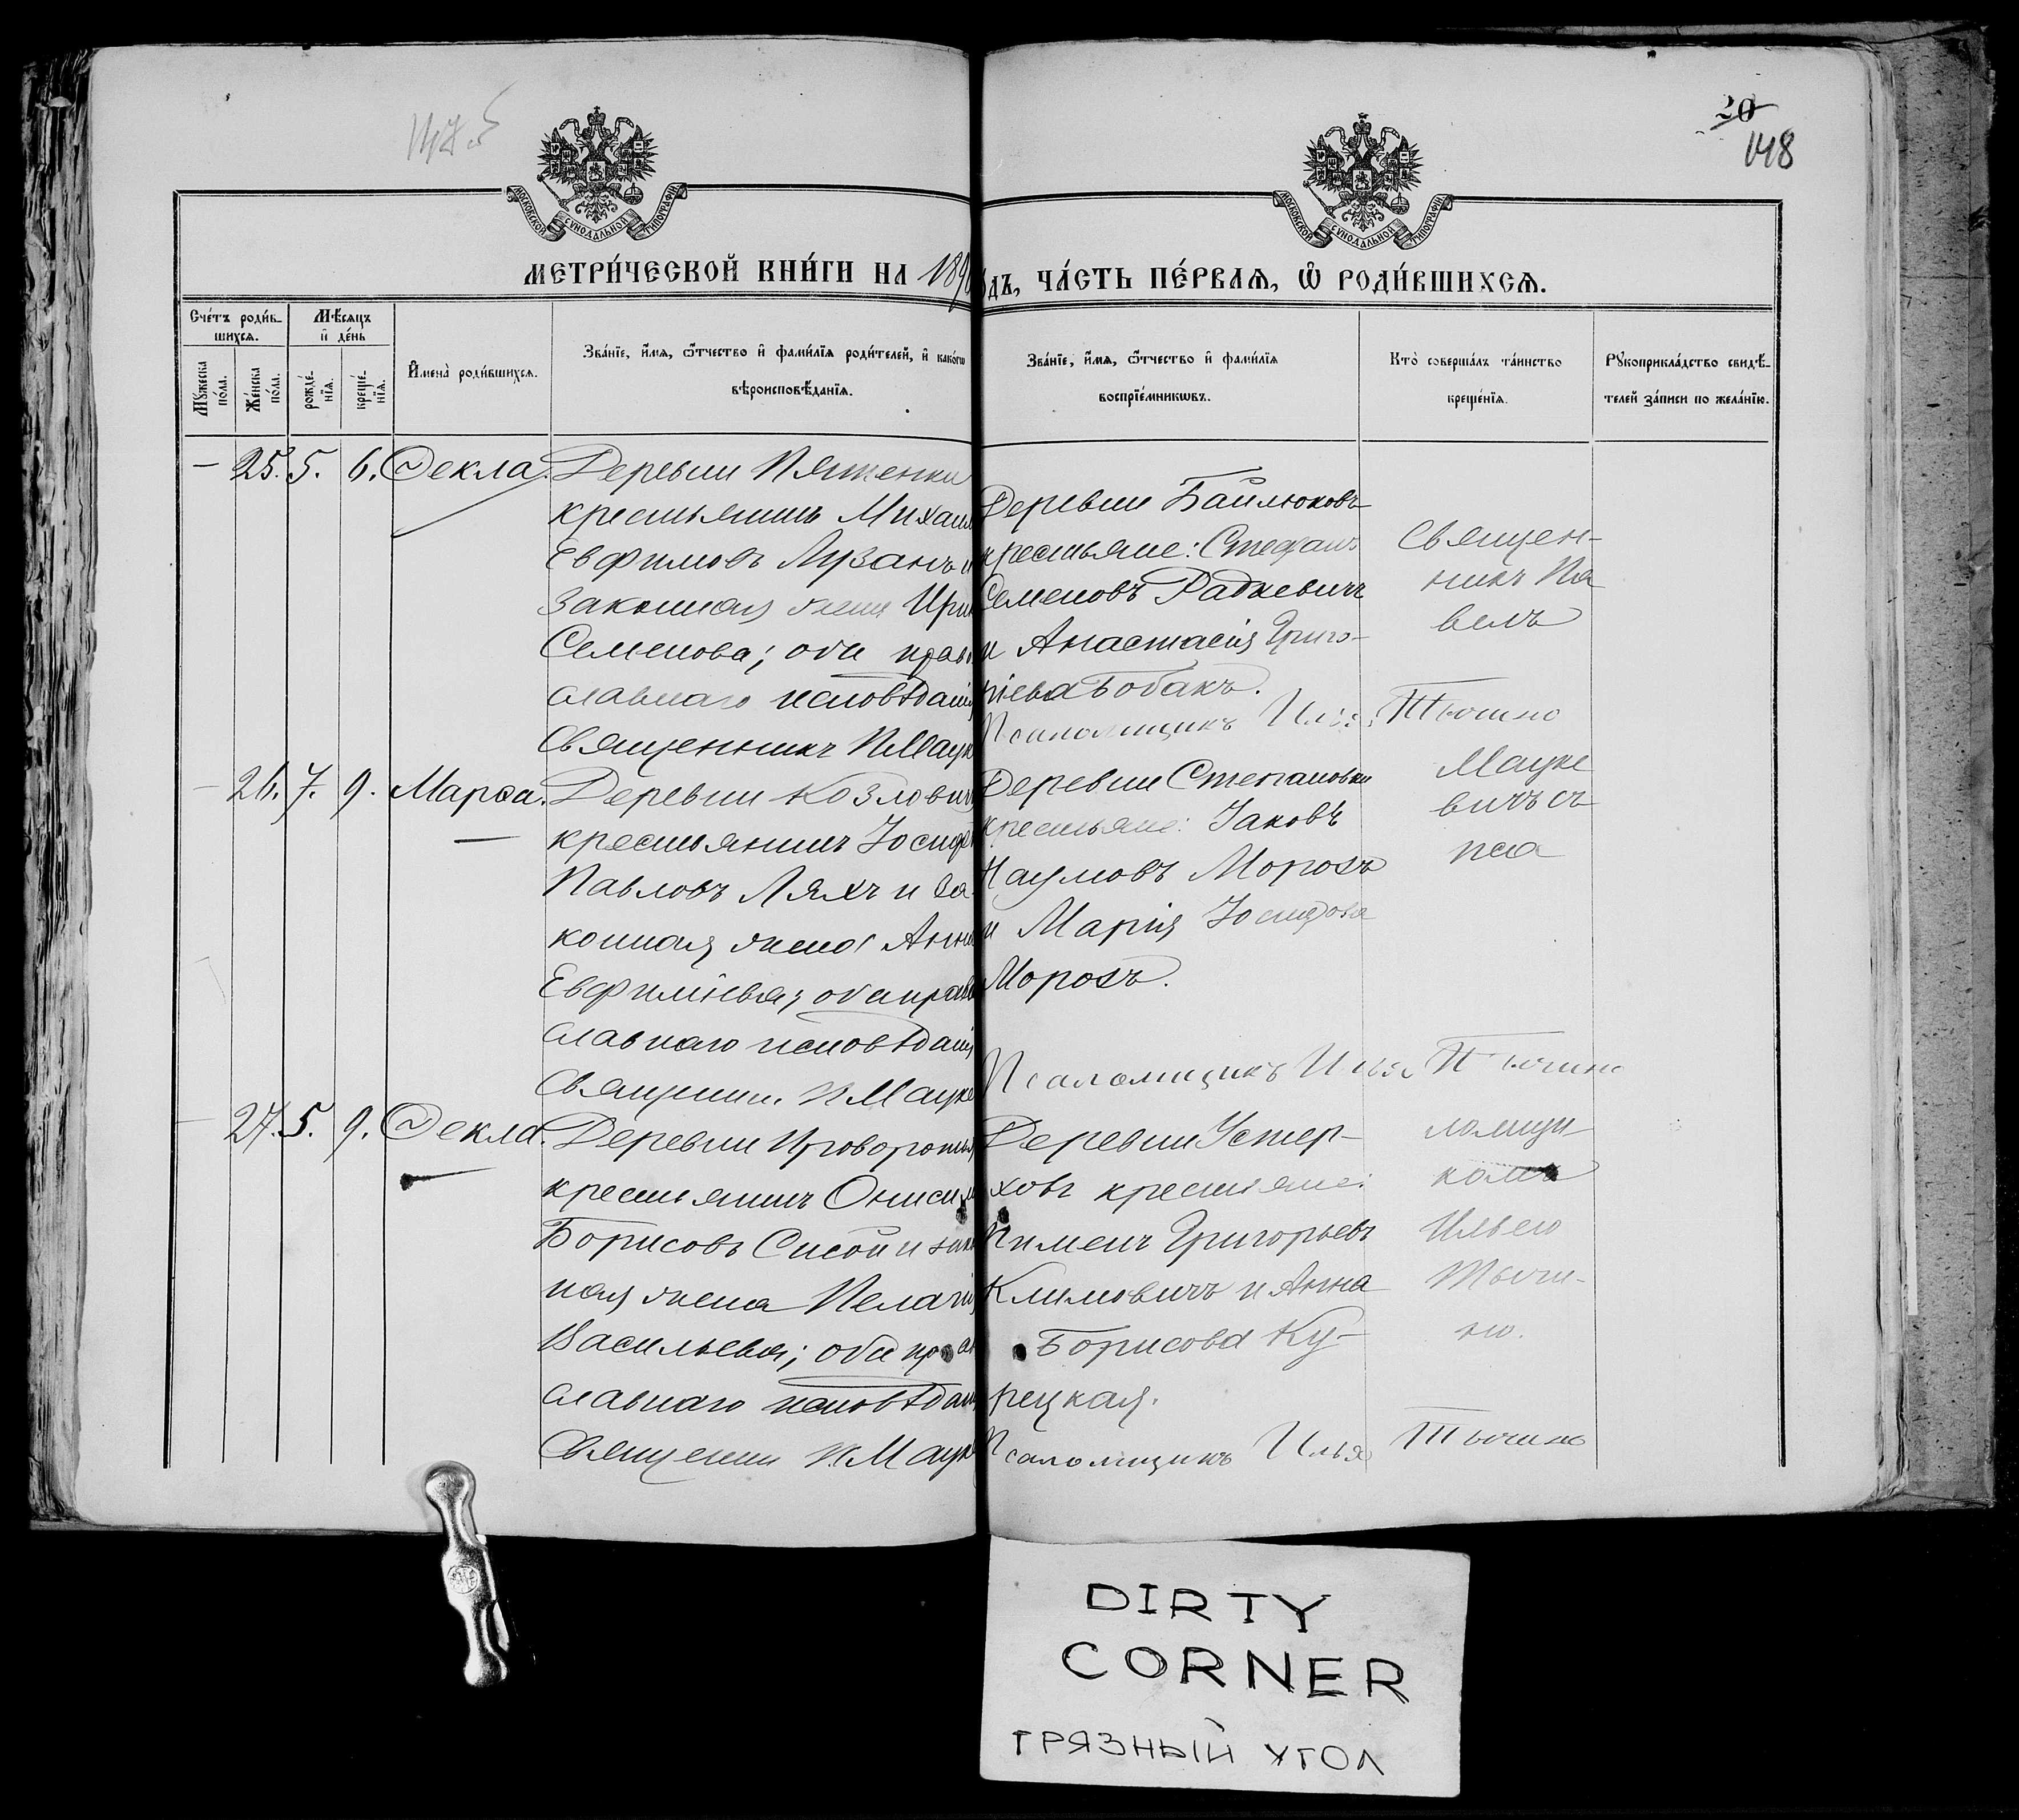 20
148
МОСКОВСКОЙ СѴНОДАЛЬНОЙ ТИПОГРАФІИ
МОСКОВСКОЙ СѴНОДАЛЬНОЙ ТИПОГРАФІИ
МЕТРИ́ЧЕСКОЙ КНИ́ГИ НА 189
дъ, ЧА́СТЬ ПЕ́РВАЯ, Ѿ РОДИ́ВШИХСЯ.
Сче́тъ роди́в-
шихся.
Мѣсяцъ
и де́нь
Мꙋжеска по́ла.
Же́нска по́ла.
рожде́-
нїя.
креще́-
нїя.
Имена̀ роди́вшихся.
Зва́нїе, и́мя, ѻ́тчество и фами́лїя роди́телей, и како́гѡ
вѣроисповѣ́данїя.
Зва́нїе, и́мя, ѻ́тчество и фами́лїя
воспрїе́мникѡвъ.
Кто̀ соверша́лъ та́инство
креще́нїя.
Рꙋкоприкла́дство свидѣ́-
телей за́писи по жела́нїю.
– 25. 5. 6. Ѳекла.
Деревни
крестьянинъ Михаил
Евфимовъ Лузанъ и
законная жена Ири
Семенова; оба право
славнаго исповѣданія
Священникъ П Мацк
Деревни Байлюковъ
крестьяне: Стефанъ
Семеновъ Радкевичъ
и Анастасія Григо-
ріева Бобакъ.
Псаломщикъ Илья Тычино
Священ-
никъ Па
велъ
Мацке
вичъ съ
пса
– 26. 7. 9. Марѳа.
Деревни Козлович
крестьянинъ Іосифъ
Павловъ Ляхъ и за-
конная жена Анна
Евфиміева; оба право
славнаго исповѣданія
Священни. П Мацке
Деревни Степановки
крестьяне: Іаковъ
Наумовъ Морозъ
и Марія Іосифова
Морозъ.
Псаломщикъ Илья Тычино
– 27. 5. 9. Ѳекла.
Деревни
крестьянинъ Онисим
Борисовъ Сисой и зако
ная жена Пелагія
Васильева; оба прав
славнаго исповѣдан
Священни П. Мацк
Деревни Устер-
ховъ крестьяне:
Пименъ Григорьевъ
Климовичъ и Анна
Борисова Ку-
рецкая.
Псаломщикъ Илья Тычино
ломщи
комъ
Ильею
Тычи-
но.
DIRTY
CORNER
ГРЯЗНЫЙ УГОЛ